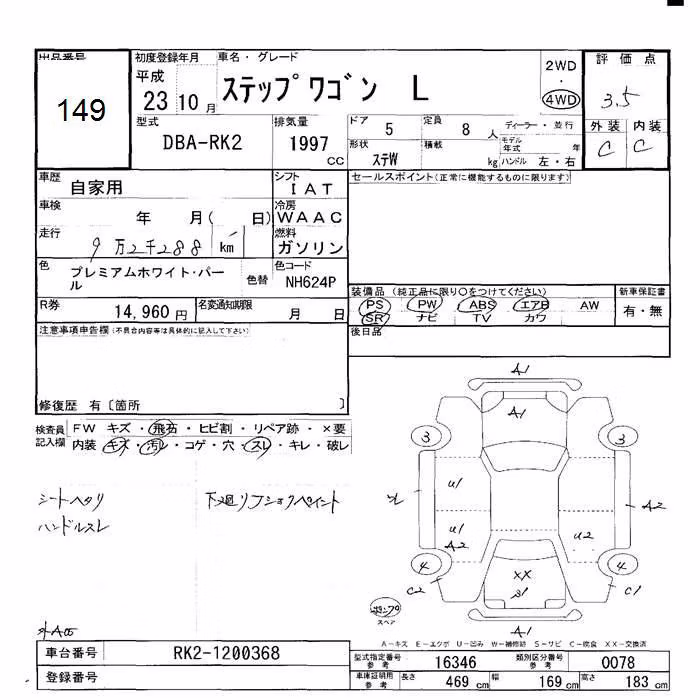 出品番号
149
初度登録年月
平成
23 10 月
車名・グレード
ステップワゴン L
2WD
・
4WD
評価点
3.5
外装 内装
C C
型式
DBA-RK2
排気量
1997
CC
ドア 5
定員 8 人
ディーラー・並行
形状 ステW
積載 kg
モデル年式 年
ハンドル 左・右
車歴 自家用
シフト IAT
セールスポイント(正常に機能するものに限ります)
車検 年 月( 日)
冷房 WAAC
走行 9万2千288 km
燃料 ガソリン
色 プレミアムホワイト・パール
色替
色コード NH624P
装備品(純正品に限り○をつけてください)
新車保証書
PS PW ABS エアB AW
有・無
SR ナビ TV カワ
R券 14,960円
名変通知期限 月 日
後日品
注意事項申告欄(不具合内容等は具体的に記入して下さい)
修復歴 有〔箇所 〕
検査員記入欄
FW キズ・飛石・ヒビ割・リペア跡・×要
内装 キズ・汚れ・コゲ・穴・スレ・キレ・破レ
シートヘタリ
ハンドルスレ
A1
A1
3 3
U1
A2
U1
A2
U2
4 4
C2
C1
XX
A1
スペア
A-キズ E-エクボ U-凹み W-補修跡 S-サビ C-腐食 XX-交換済
車台番号 RK2-1200368
型式指定番号参考 16346
類別区分番号参考 0078
登録番号
車庫証明用参考 長さ 469 cm 幅 169 cm 高さ 183 cm